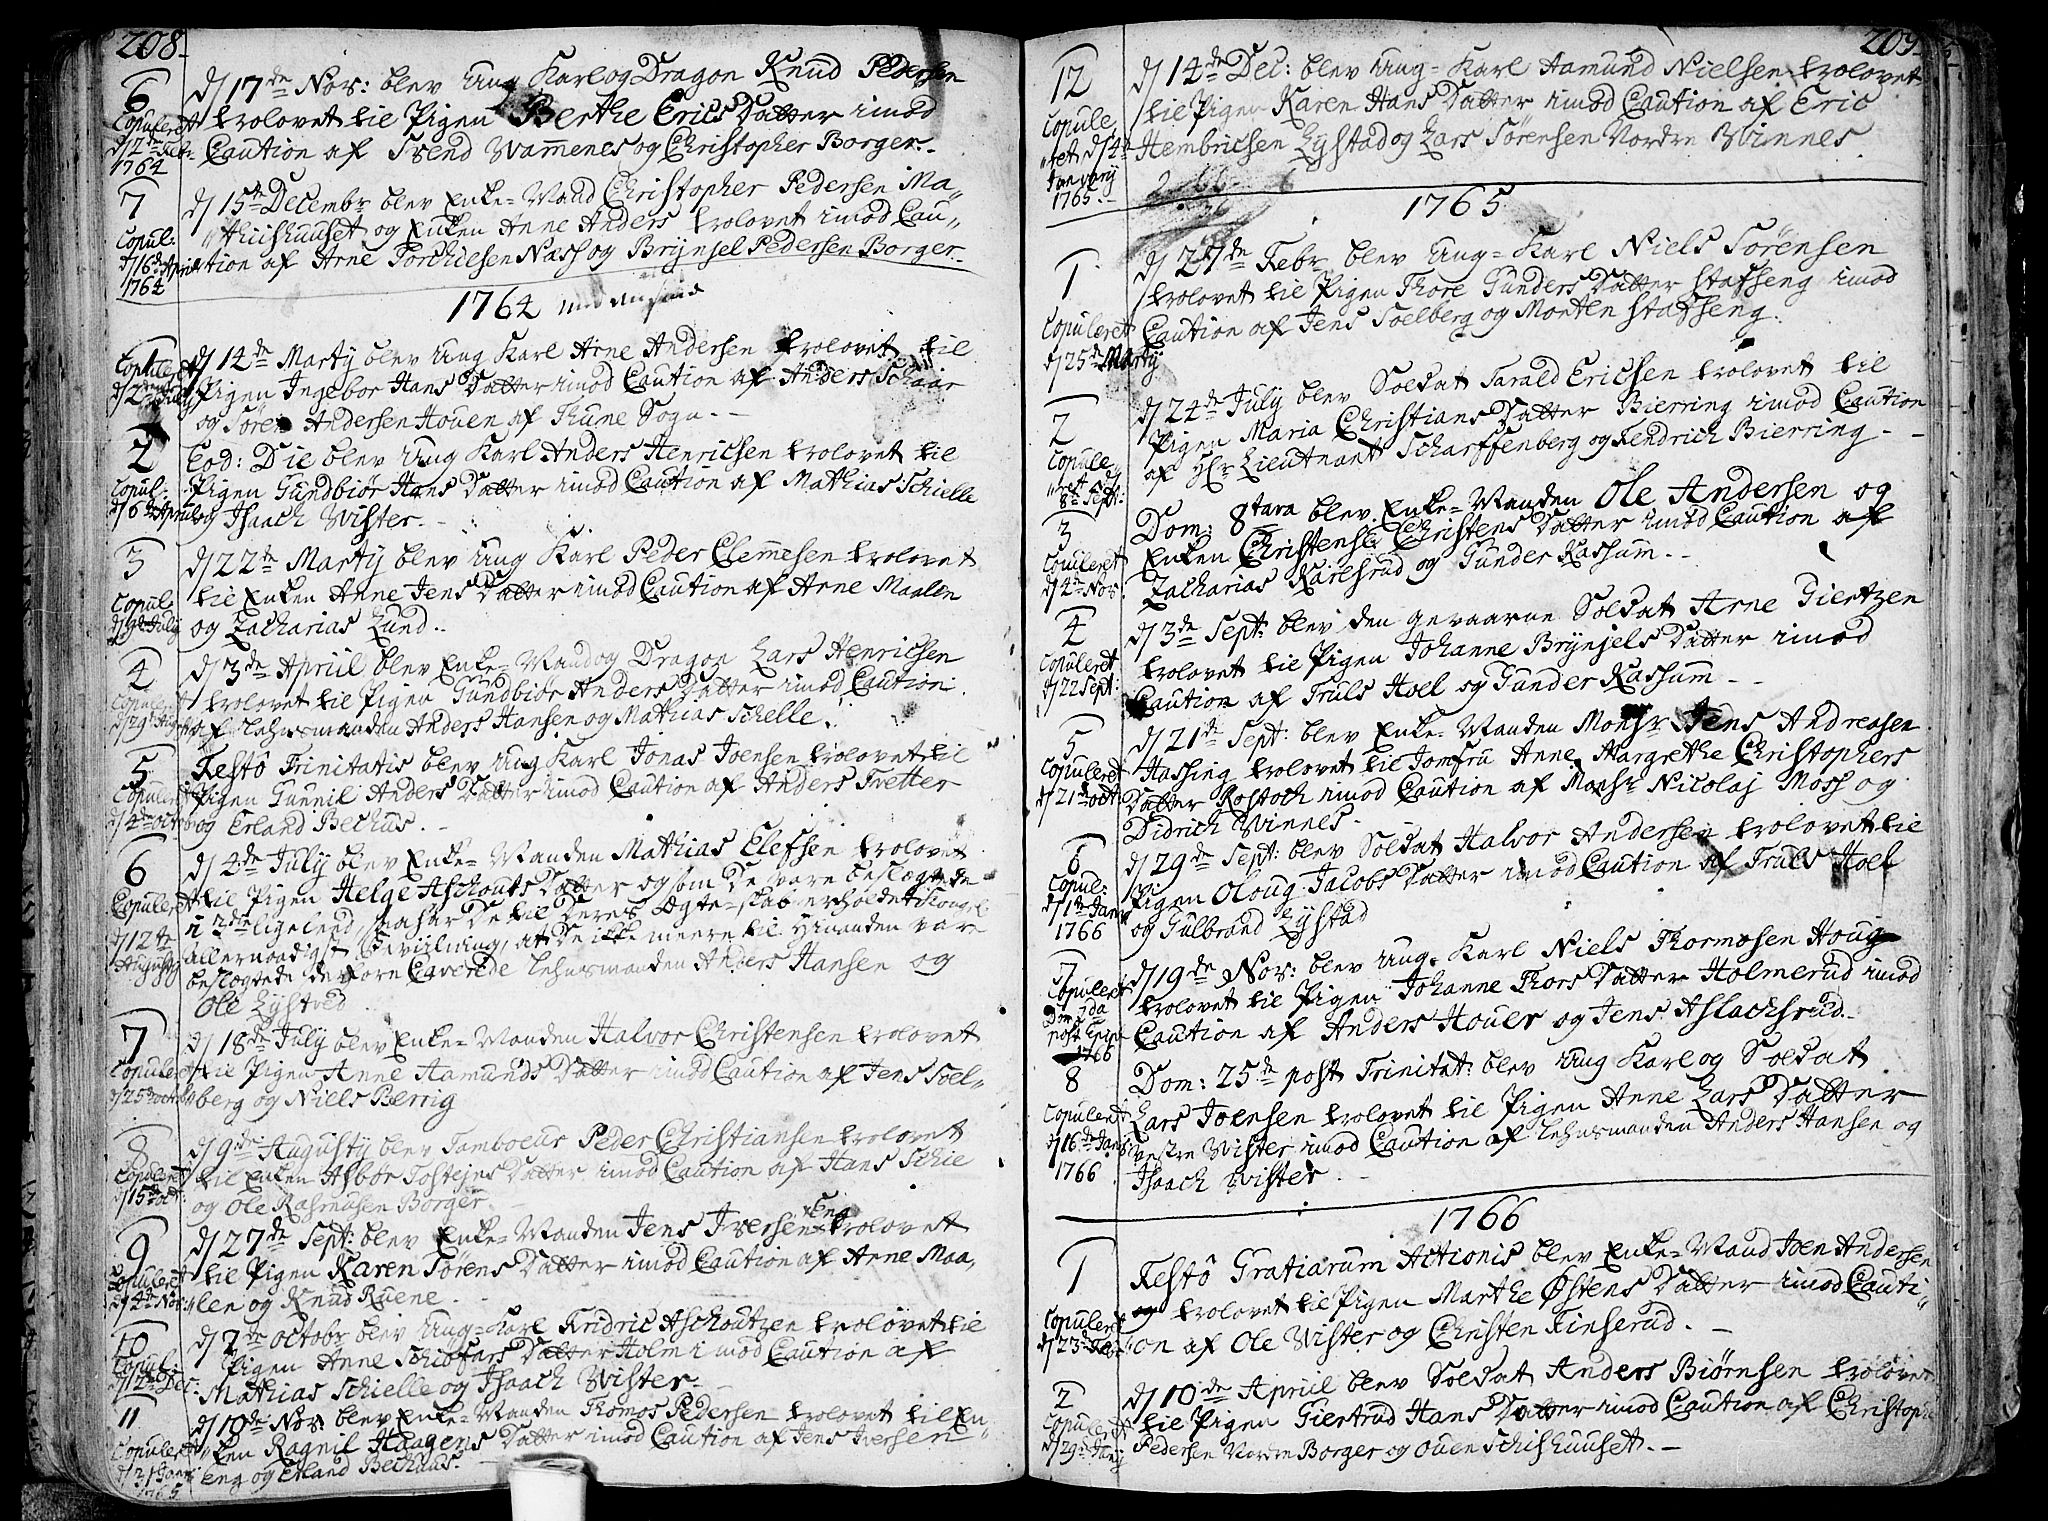 208.
6
Copuleret
d/17de Febr:
1764
d/17de Nov: blev Ung Karl og Dragon Knud Pedersen
trolovet til Pigen Berthe Erics Datter imod
Caution af Svend Wammenes og Christopher Borger.
7
Copul:
d/16de April
1764
d/15de Decembr blev Enke-Mand Christopher Pedersen Ma„
„thiishuuset og Enken Anne Anders trolovet imod Cau„
„tion af Arne Torchielsen Nass og Brynjel Pedersen Borger.
1764
1
Copuleret
d/2den July
d/14de Martij blev Ung Karl Arne Andersen trolovet til
Pigen Ingebor Hans Datter imod Caution af Anders Schaar
og Søren Andersen Houen af Thune Sogn.
2
Copul:
d/6te April
Eod: Die blev Ung Karl Anders Henricsen trolovet til
Pigen Gundbiør Hans Datter imod Caution af Mathias Schielle
og Isaach Wister.
3
Copul
d/ July
d/22de Martij blev Ung Karl Peder Clemmesen trolovet
til Enken Anne Jens Datter imod Caution af Arne Maalen
og Zacharias Lund.
4
Copuleret
d/29 Aug
d/3de April blev Enke-Mand og Dragon Lars Henricsen
trolovet til Pigen Gundbiør Anders Datter imod Caution
af Lehnsmanden Anders Hansen og Mathias Schelle.
5
Copuleret
d/4de Octobr
Festô Trinitatis blev Ung Karl Jonas Joensen trolovet til
Pigen Gunnil Anders Datter imod Caution af Anders Tvetter
og Erland Bechus.
6
Copuleret
d/12te
Augusty
d/4de July blev Enke-Manden Mathias Elefsen trolovet
til Pigen Helge Aschouts Datter og som De vare beslægtede
i 3de ligeleed, saa har De til Deres Ægte-skab erholdet Kongel:
allernaadigst Bevilning, at De icke meere til hinanden vare
beslægtede derfore Caverede Lehnsmanden Anders Hansen og
Ole Lystved
7
Copuleret
d/25 Octobr
d/18de July blev Enke-Manden Halvor Christensen trolovet
til Pigen Anne Aamunds Datter imod Caution af Jens Soel„
berg og Niels Berrig
8
Copuleret
d/15de Oct:
d/9de Augusty blev Tamboeur Peder Christiansen trolovet
til Enken Asbor Tostejns Datter imod Caution af Hans Schie
og Ole Rasmusen Borger.
9
Copuleret
d/4de Nov:
d/27de Sept: blev Enke-Manden Jens Iversen Eng trolovet
til Pigen Karen Sørens Datter imod Caution af Arne Maa„
len og Knud Ruene.
10
Copul:
d/12te Dec:
d/2de Octobr blev Ung-Karl Fridric Aschoutzen trolovet til
Pigen Anne Schiøfers Datter Holm imod Caution af
Mathias Schielle og Isaach Wister.
11
Copuleret
d/21 Janv:
1765
d/10de Nov: blev Enke-Manden Thomos Pedersen trolovet til En„
„ken Ragnil Haagens Datter imod Caution af Jens Iversen
eng og Erland Bechuus.
209.
12
Copule„
„ret d/4de
January
1765.
d/14de Dec: blev Ung-Karl Aamund Nielsen trolovet
til Pigen Karen Hans Datter imod Caution af Eric
Hembricsen Lystad og Lars Sørensen Nordre Winnes.
1765
1
Copuleret
d/25de Martij
d/27de Febr blev Ung-Karl Niels Sørensen
trolovet til Pigen Thore Gunders Datter Stafseng imod
Caution af Jens Soelberg og Morten Stafseng.
2
Copule„
„ret d/
8de Sept:
d/24de July blev Soldat Tarald Ericsen trolovet til
Pigen Maria Christians Datter Bierring imod Caution
af Hr Lieutnant Scharffenberg og Fendrich Bierring.
3
Copuleret
d/4de Nov:
Dom: 8tava blev Enke-Manden Ole Andersen og
Enken Christense Christens Datter imod Caution af
Zacharias Karlsrud og Gunder Kassum.
4
Copuleret
d/22 Sept:
d/3de Sept: blev den gevaarne Soldat Arne Giertzen
trolovet til Pigen Johanne Brynjels Datter imod
Caution af Truls Hoel og Gunder Kassum.
5
Copuleret
d/21de Oct:
d/21de Sept: blev Enke-Manden Monsr Jens Andreasen
Hassing trolovet til Jomfru Anne Margrethe Christophers
Datter Rostoch imod Caution af Monsr Nicolaj Moss og
Didrich Winnes.
6
Copul:
d/1te Janv
1766
d/29de Sept: blev Soldat Halvor Andersen trolovet til
Pigen Oloug Jacobs Datter imod Caution af Truls Hoel
og Gulbrand Lystad
7
Copuleret
Dom 2da
post Epiph
1766
d/19de Nov: blev Ung-Karl Niels Thormosen Houg
trolovet til Pigen Johanne Thors Datter Holmerud imod
Caution af Anders Houer og Jens Aslachsrud.
8
Copuleret
d/16de Janv:
1766
Dom: 25de post Trinitat: blev Ung Karl og Soldat
Lars Joensen trolovet til Pigen Anne Lars Datter
vestre Wister imod Caution af Lehnsmanden Anders Hansen og
Isaach Wister.
1766
1
Copuleret
d/23de
Festô Gratiarum Actionis blev Enke-Mand Joen Andersen
og trolovet til Pigen Marthe Østens Datter imod Cauti„
„on af Ole Wister og Christen Finserud.
2
Copuleret
d/29
d/10de April blev Soldat Anders Biørnsen trolovet
til Pigen Giertrud Hans Datter imod Caution af Christoph
Pedersen Nordre Borger og Ouen Schishuuset.